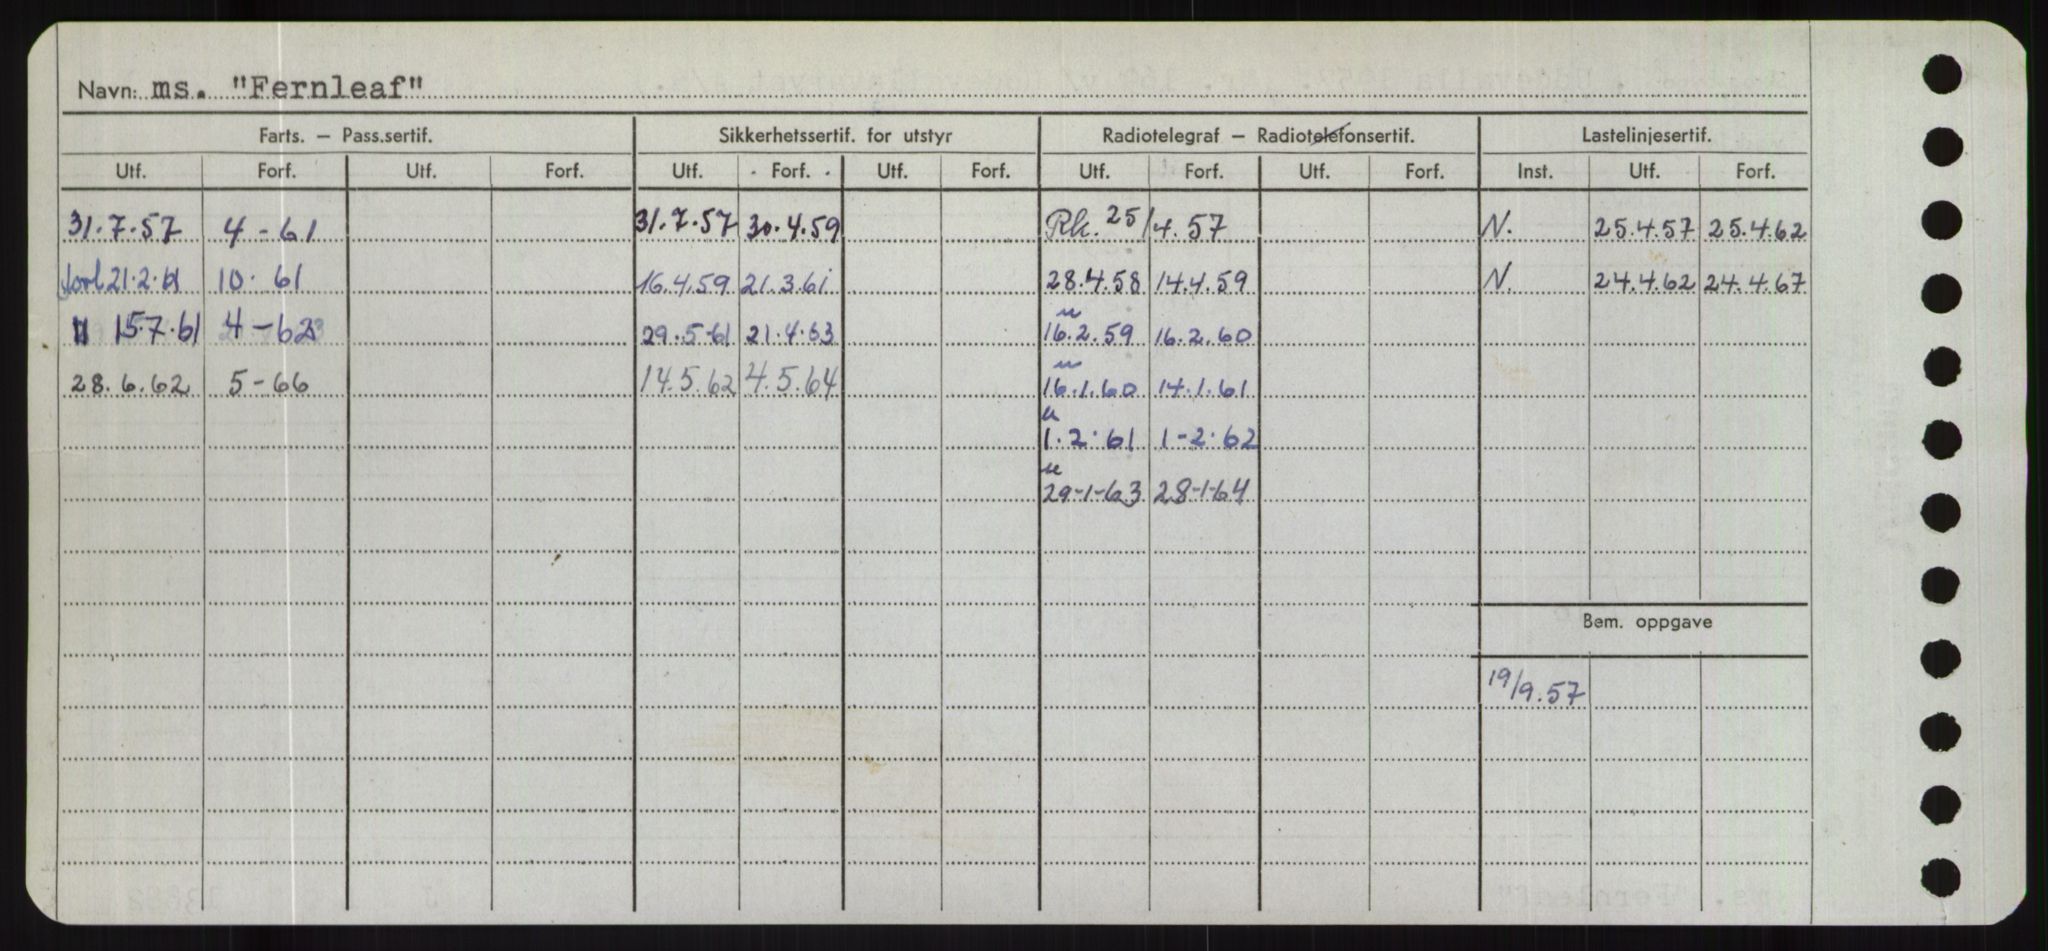 Navn: ms. "Fernleaf"
Farts. — Pass.sertif. Sikkerhetssertif. for utstyr Radiotelegraf — Radiotelefonsertif. Lastelinjesertif.
Utf. Forf. Utf. Forf. Utf. Forf. Utf. Forf. Utf. Forf. Utf. Forf. Inst. Utf. Forf.
31.7.57 4-61 31.7.57 30.4.59 Rk. 25/4.57 N. 25.4.57 25.4.62
21.2.61 10. 61 16.4.59 21.3.61 28.4.58 14.4.59 N. 24.4.62 24.4.67
" 15.7.61 4-62 29.5-61 21.4.63 16.2.59 16.2.60
28.6.62 5-66 14.5.62 4.5.64 16.1.60 14.1.61
1.2.61 1-2.62
29-1-63 28-1-64
Bem. oppgave
19/9.57